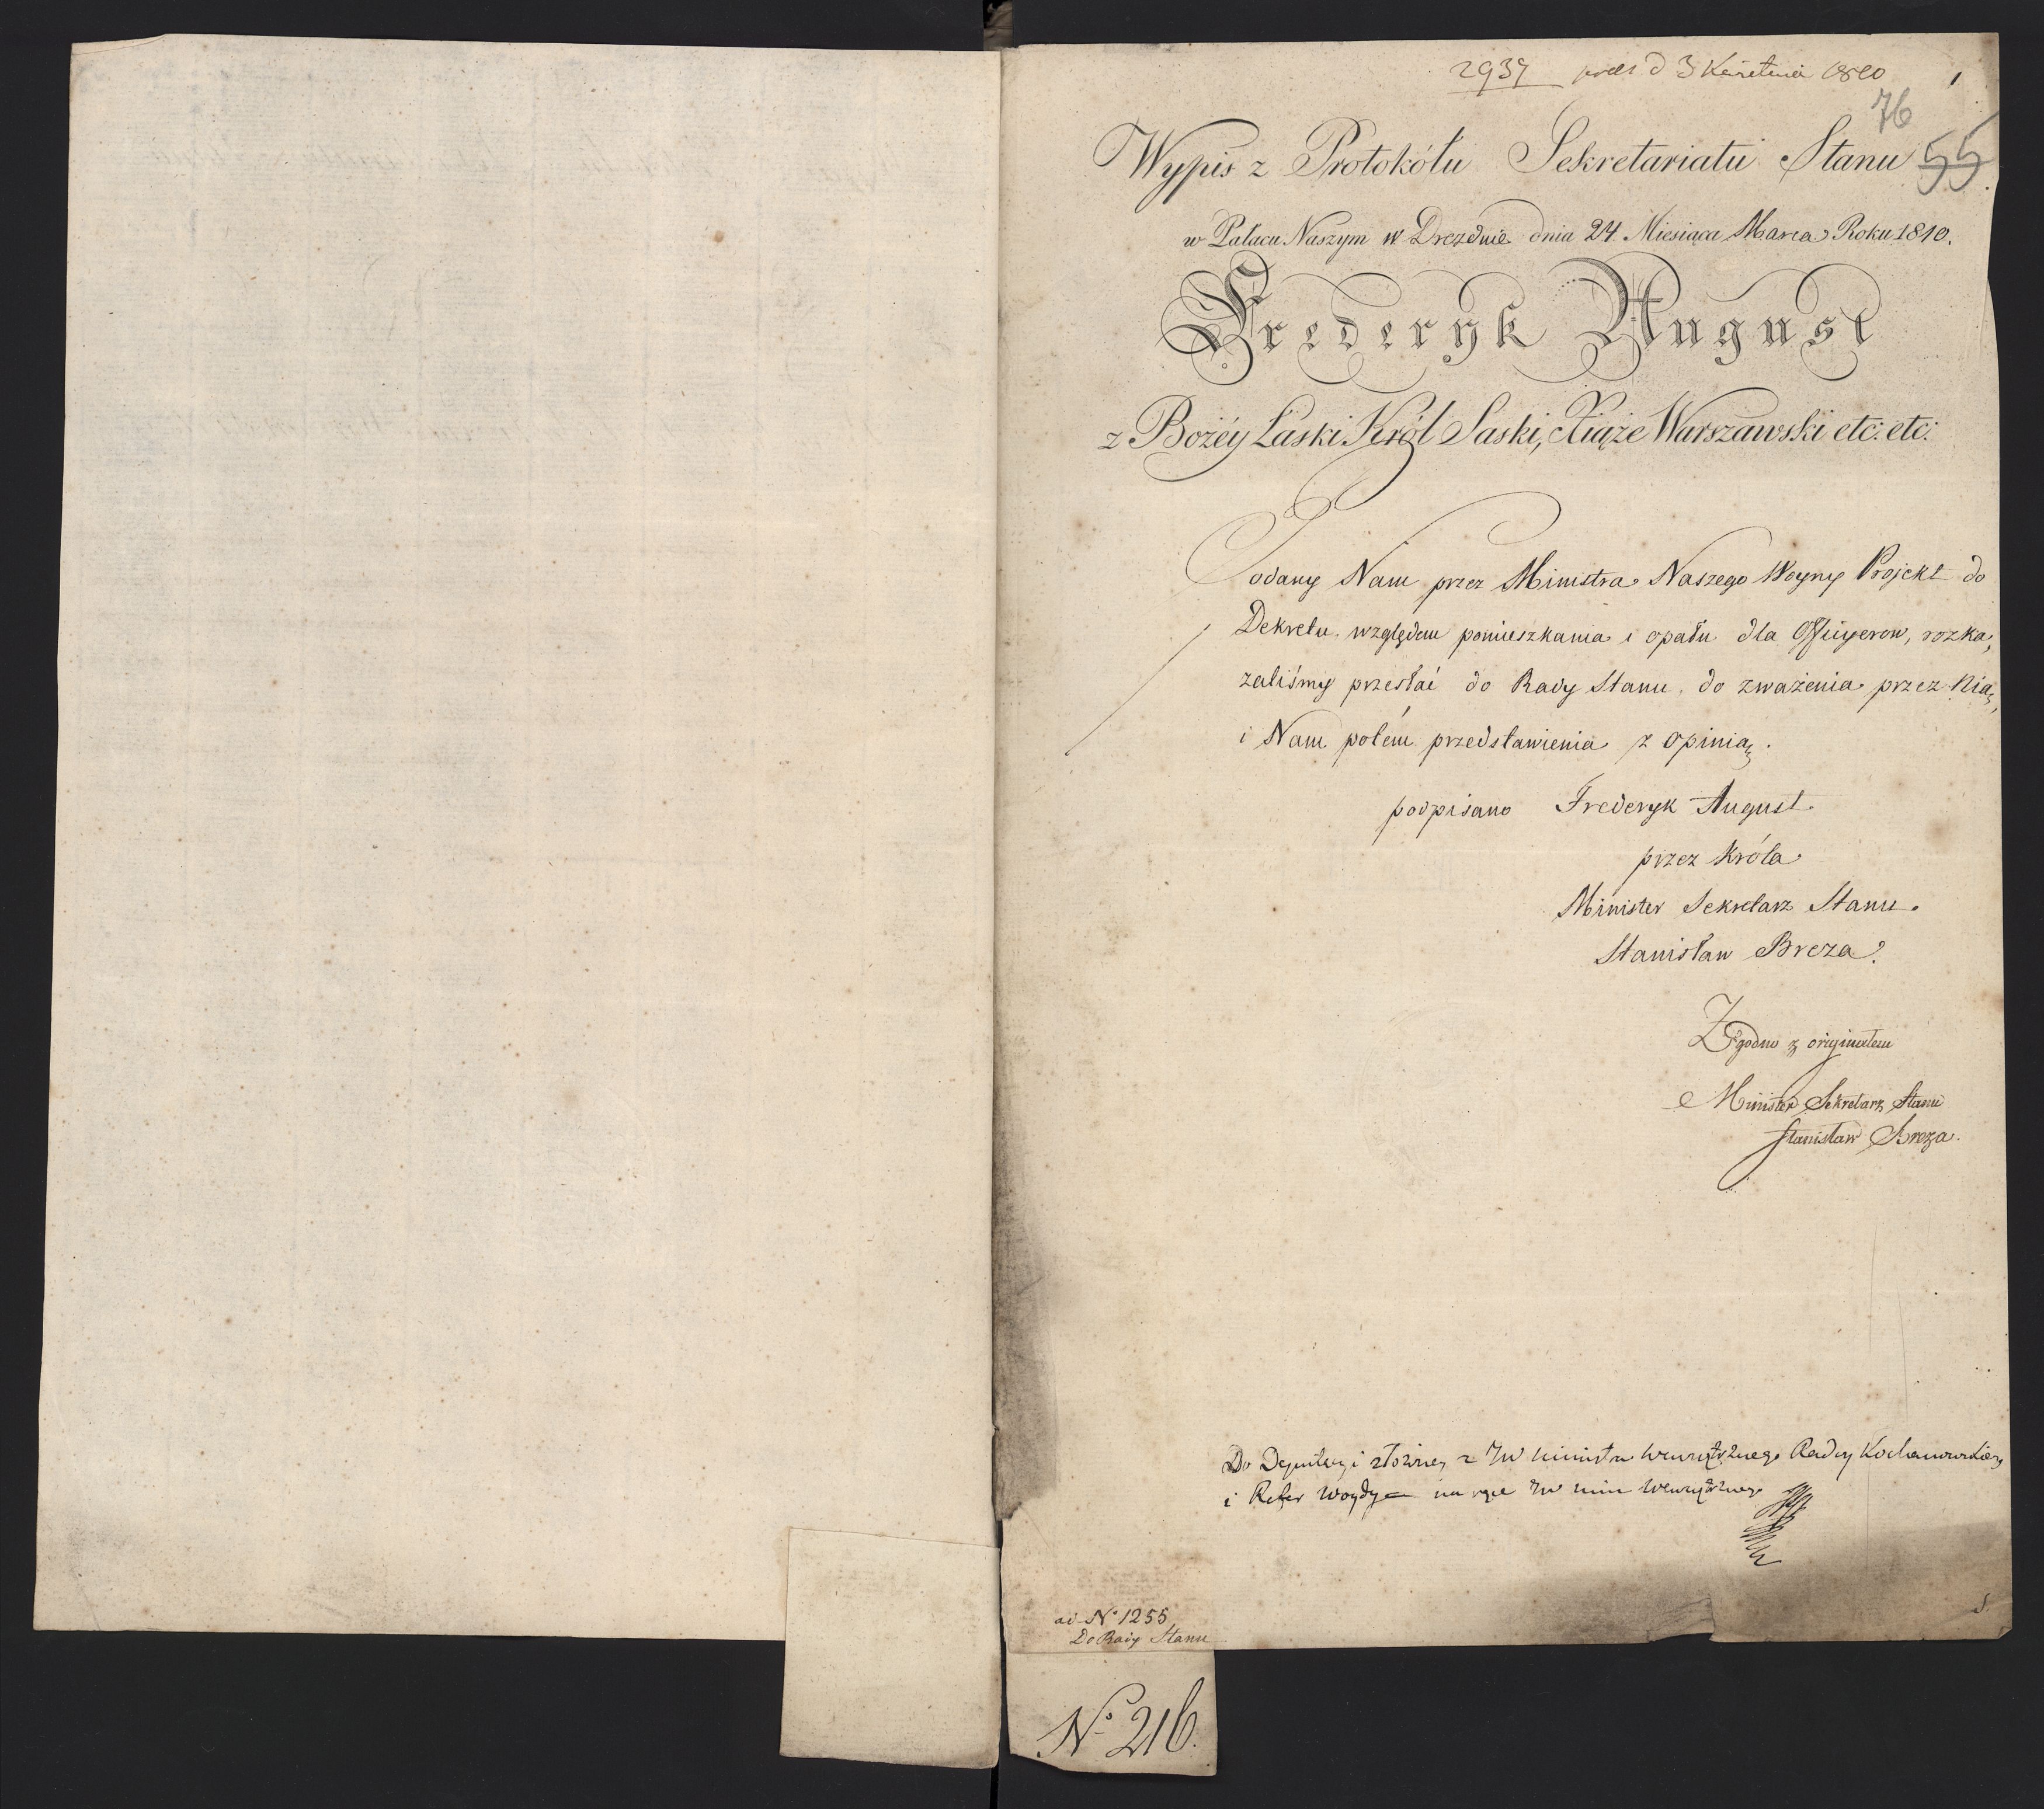 2937 pres d 3 Kwietnia 1810 1
76
Wypis z Protokółu Sekretariatu Stanu 55
w Pałacu Naszym w Dreznie dnia 24 Miesiąca Marca Roku 1810.
Frederyk August
z Bożéy Łaski Król Saski, Xiąże Warszawski etc: etc:
Podany Nam przez Ministra Naszego Woyny Projekt do
Dekretu względem pomieszkania i opału dla Officyerow, rozka,
zaliśmy przesłać do Rady Stanu, do zważenia przez Nią,
i Nam potém przedstawienia z opinią.
podpisano Frederyk August.
przez Króla
Minister Sekretarz Stanu.
Stanisław Breza.
Zgodno z originałem
Minister Sekretarz Stanu
Stanisław Breza.
Do Deputacyi złożoney z JW Ministra Wewnętrznego Radcy Kochanowskiego
i Refer Woydy na ręce JW Min Wewnętrznego
ad N° 1255
Do Rady Stanu
N° 216.